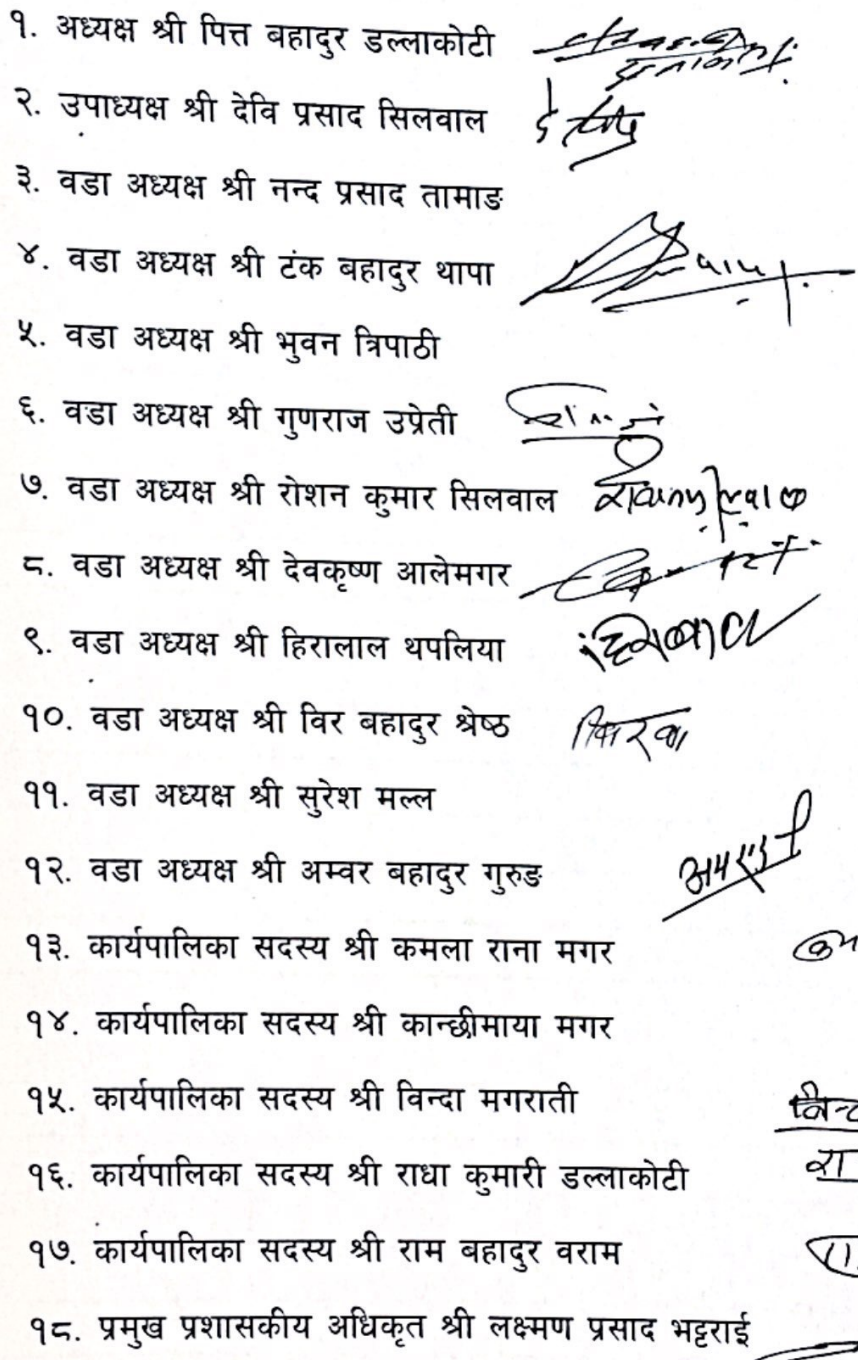 १. अध्यक्ष श्री पित्त बहादुर डल्लाकोटी
२. उपाध्यक्ष श्री देवि प्रसाद सिलवाल
३. वडा अध्यक्ष श्री नन्द प्रसाद तामाङ
४. वडा अध्यक्ष श्री टंक बहादुर थापा
५. वडा अध्यक्ष श्री भुवन त्रिपाठी
६. वडा अध्यक्ष श्री गुणराज उप्रेती
७. वडा अध्यक्ष श्री रोशन कुमार सिलवाल
८. वडा अध्यक्ष श्री देवकृष्ण आलेमगर
९. वडा अध्यक्ष श्री हिरालाल थपलिया
१०. वडा अध्यक्ष श्री विर बहादुर श्रेष्ठ
११. वडा अध्यक्ष श्री सुरेश मल्ल
१२. वडा अध्यक्ष श्री अम्वर बहादुर गुरुङ
१३. कार्यपालिका सदस्य श्री कमला राना मगर
१४. कार्यपालिका सदस्य श्री कान्छीमाया मगर
१५. कार्यपालिका सदस्य श्री विन्दा मगराती
१६. कार्यपालिका सदस्य श्री राधा कुमारी डल्लाकोटी
१७. कार्यपालिका सदस्य श्री राम बहादुर वराम
१८. प्रमुख प्रशासकीय अधिकृत श्री लक्ष्मण प्रसाद भट्टराई